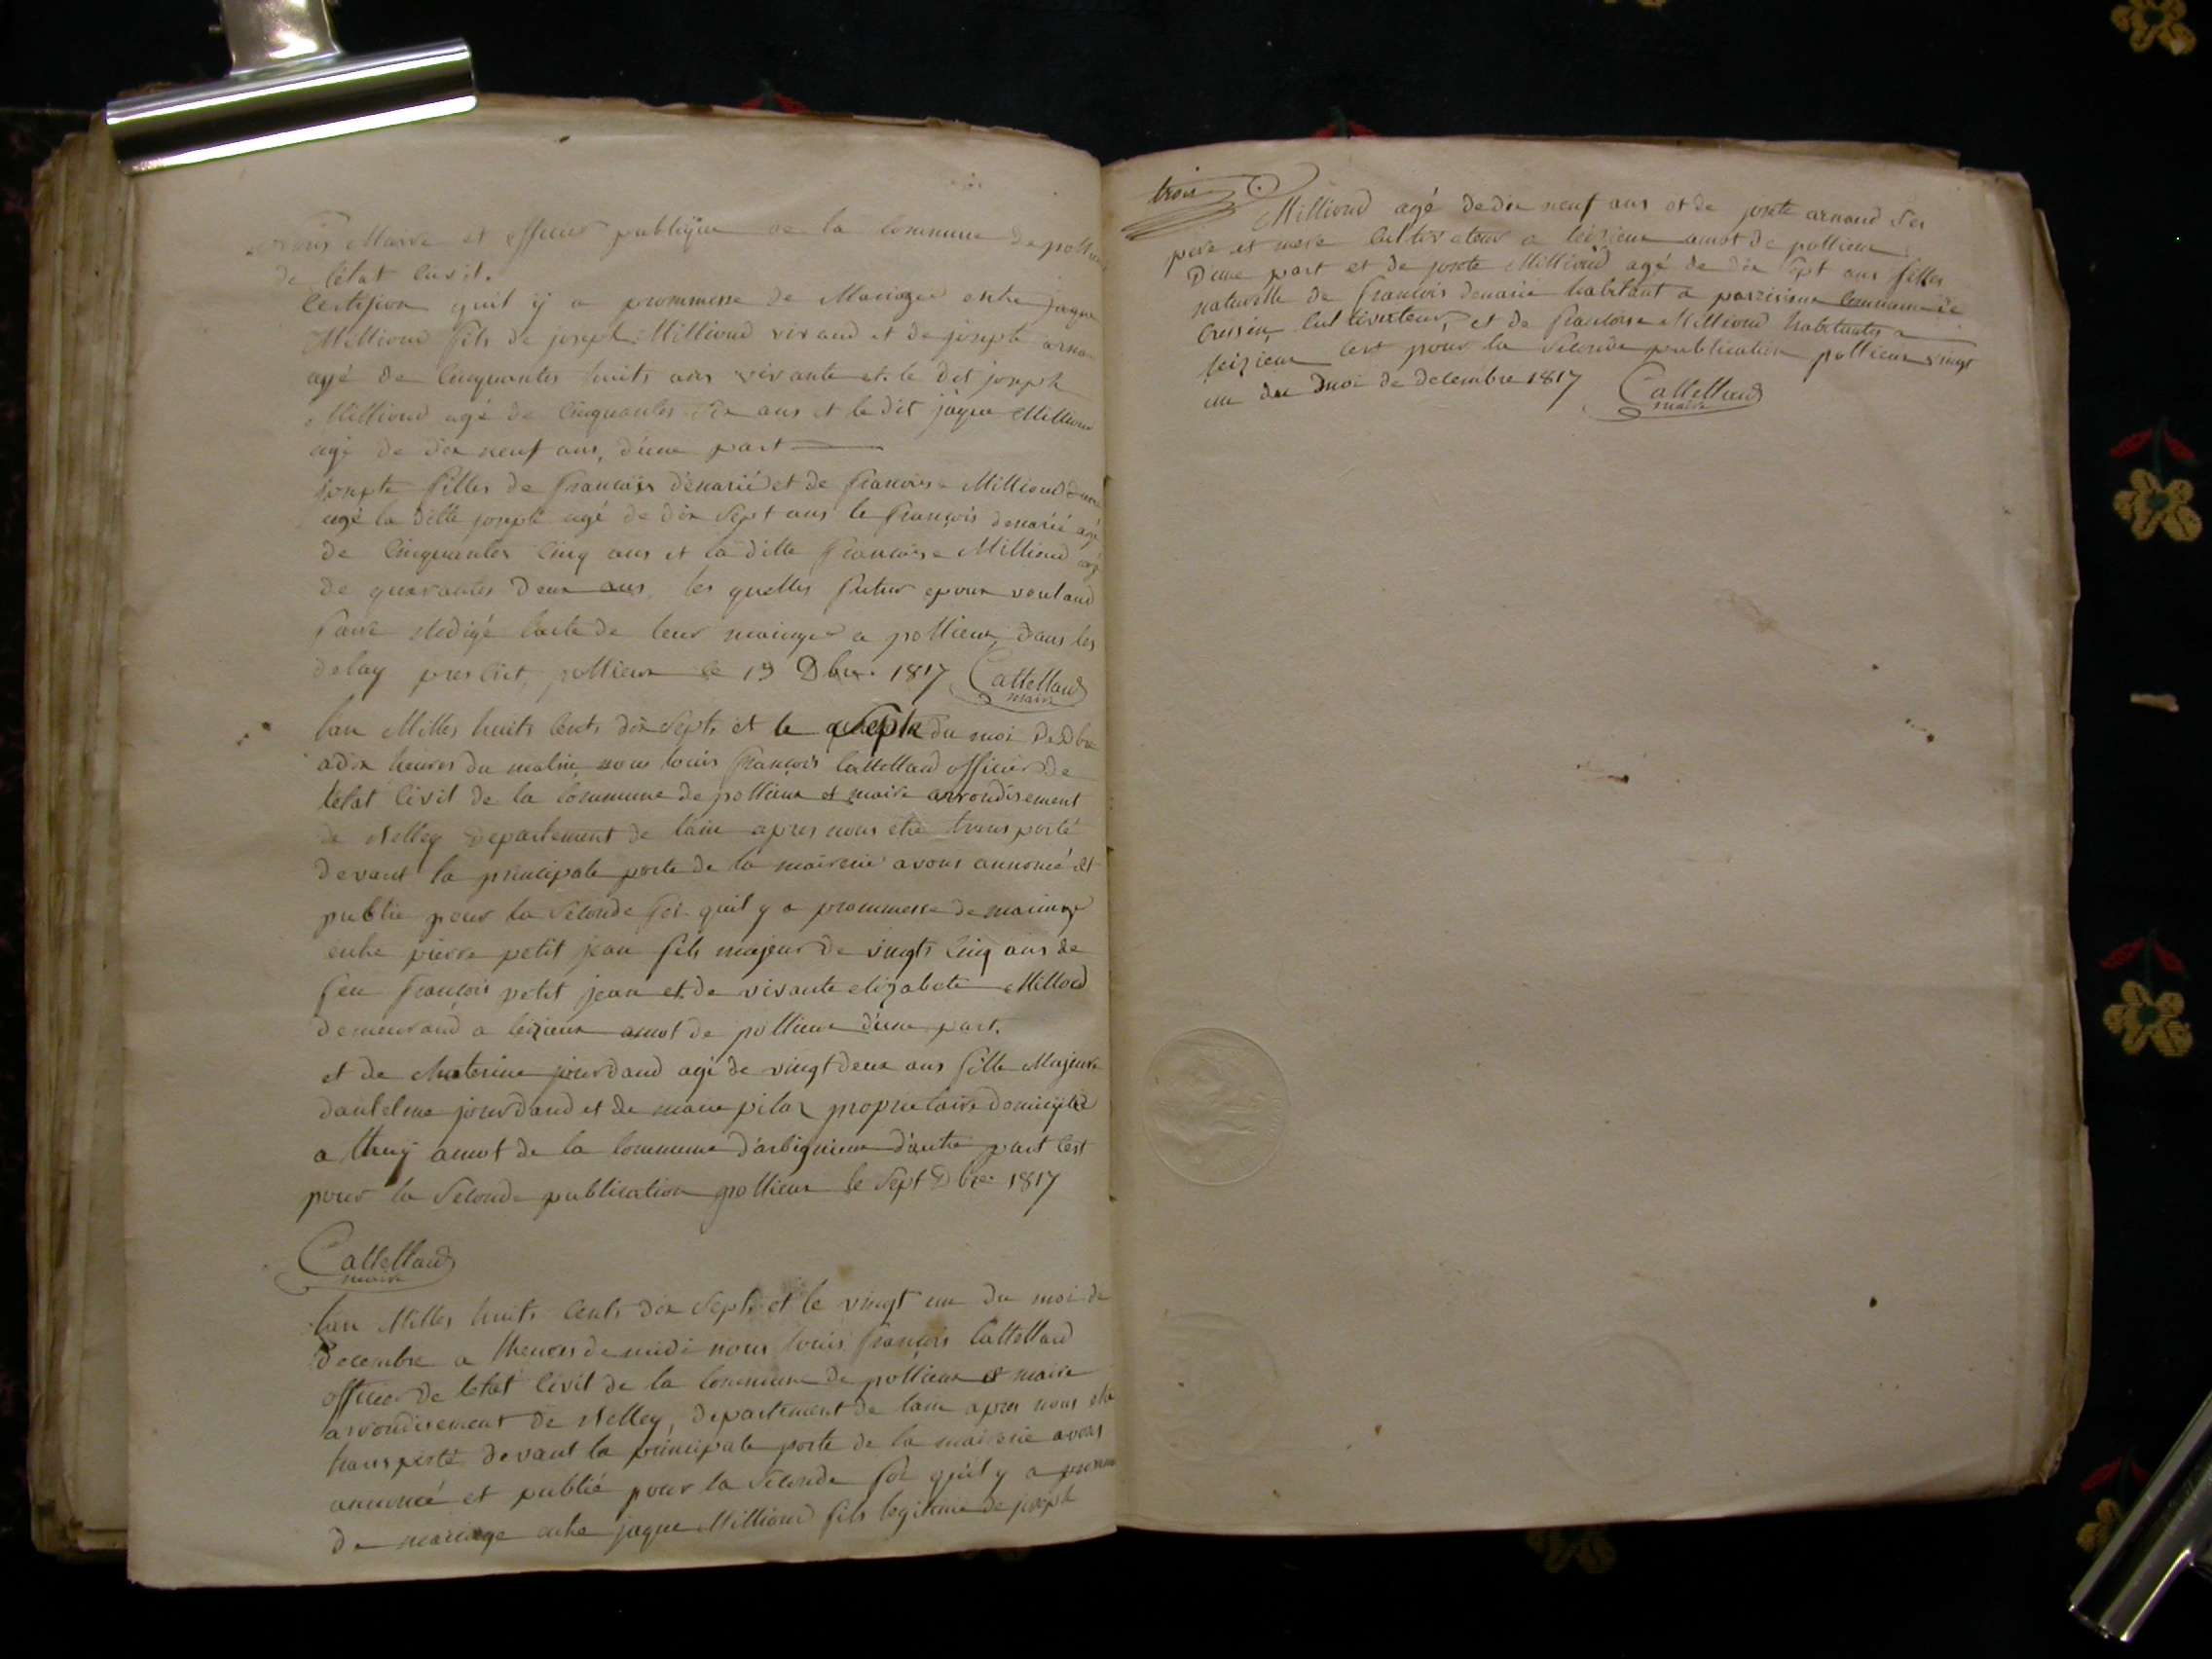 Nous Maire et officier publique de la commune de pollieu
de l'état civil.
Certifion quil ÿ a prommesse de Mariage entre jaque
Milliond fils de joseph Milliond vivand et de josepte arnau
agé de Cinquantes huits ans vivante et le dit joseph
Milliond agé de Cinquantes dix ans et le dit jaque Milliond
agé de dix neuf ans, d'une part
josepte filles de francois dénarié et de francoise Milliond
agé la ditte josepte agé de dix sept ans le françois denarié agé
de cinquantes cinq ans et la ditte francoise Milliond agé
de quarantes deux ans les quelles futur epoux vouland
faire Redigé l'acte de leur mariage a pollieux dans les
delay prescrit, pollieux le 19 Dbre 1817 Cattelland
maire
lan Milles huits cents dix sept et le sept du moi de Dbre
a dix heures du matin nous louis françois Cattelland officier de
letat civil de la commune de pollieux et maire arrondisement
de Belley departement de lain apres nous etre transporté
devant la principale porte de la mairerie avons annoncé et
publié pour la seconde foi quil y a prommesse de mariage
entre pierre petit jean fils majeur de vingts cinq ans de
feu francois petit jean et de vivante elizabete Milliod
demeurand a leizieux amot de pollieux d'une part.
et de Chaterine jourdand agé de vingt deux ans fille Majeure
dantelme jourdand et de marie pilaz proprietaire domicylié
a thuÿ amot de la commune d'arbignieux d'autre part cest
pour la seconde publication pollieux le sept Dbre 1817
Cattelland
maire
lan Milles huits cents dix sept et le vingt un du moi de
Decembre a heures de midi nous louis françois Cattelland
officier de letat civil de la commune de pollieux et maire
arrondisement de Belley, departement de lain apres nous etre
transporté devant la principale porte de la mairerie avons
annoncé et publié pour la seconde foi quil y a promme
de mariage entre jaque Milliond fils legitime de joseph
trois
Milliond agé de dix neuf ans et de josete arnaud ses
pere et mere cultivateur a leizieux amot de pollieux
D'une part et de josete Milliond agé de dix sept ans filles
naturelle de francois denarié habitant a parzisieux commune de
Cressin, cultivateur, et de francoise Milliond habitantes a
leizieux cest pour la seconde publication pollieux vingt
un du moi de decembre 1817 Cattelland
maire